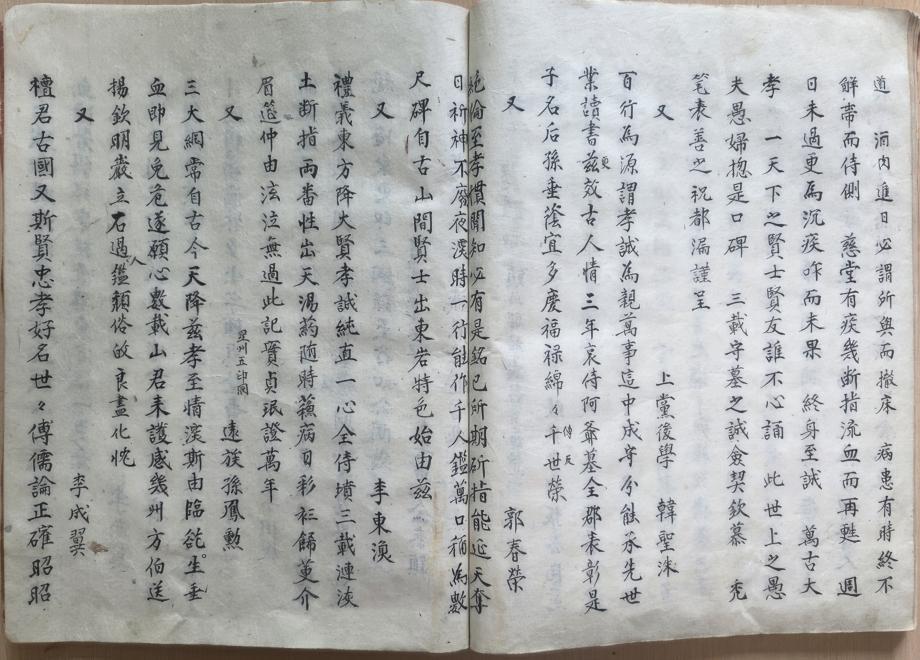 道 酒肉進日必謂所與而撤床 病患有時終不
解帶而侍側 慈堂有疾幾斷指流血而再甦 週
日未過更為沉疾咋而未果 終身至誠 萬古大
孝 一天下之賢士賢友誰不心誦 此世上之愚
夫愚婦揔是口碑 三載守墓之誠僉契欽慕 禿
笔表善之祝都漏謹呈
又 上黨後學 韓聖洙
百行為源謂孝誠為親萬事這中成守分能承先世
業讀書玆效古人情三年哀侍阿爺墓全郡表彰是
子名后孫垂蔭宜多慶福禄綿々千世榮
又 郭春榮
絶倫至孝慣聞知必有是銘已所期斫指能延天奪
日祈神不廢夜深時一行能作千人鑑萬口稱為數
尺碑自古山間賢士出東岩特色始由玆
又 李東演
禮義東方降大賢孝誠純直一心全侍墳三載漣淚
土断指両番性出天湯药随時蘓病日彩衫歸莫介
眉筵仲由泣泣無過此記實貞珉證萬年
又 星州五印閣 遠族孫鳳勲
三大綱常自古今天降玆孝至情深斯由臨危生垂
血即見免危遂願心數載山君来護感幾州方伯送
揚欽明歲立石過人鑑頽俗敀良盡化忱
又 李成翼
檀君古國又斯賢忠孝好名世々傳儒論正確昭昭